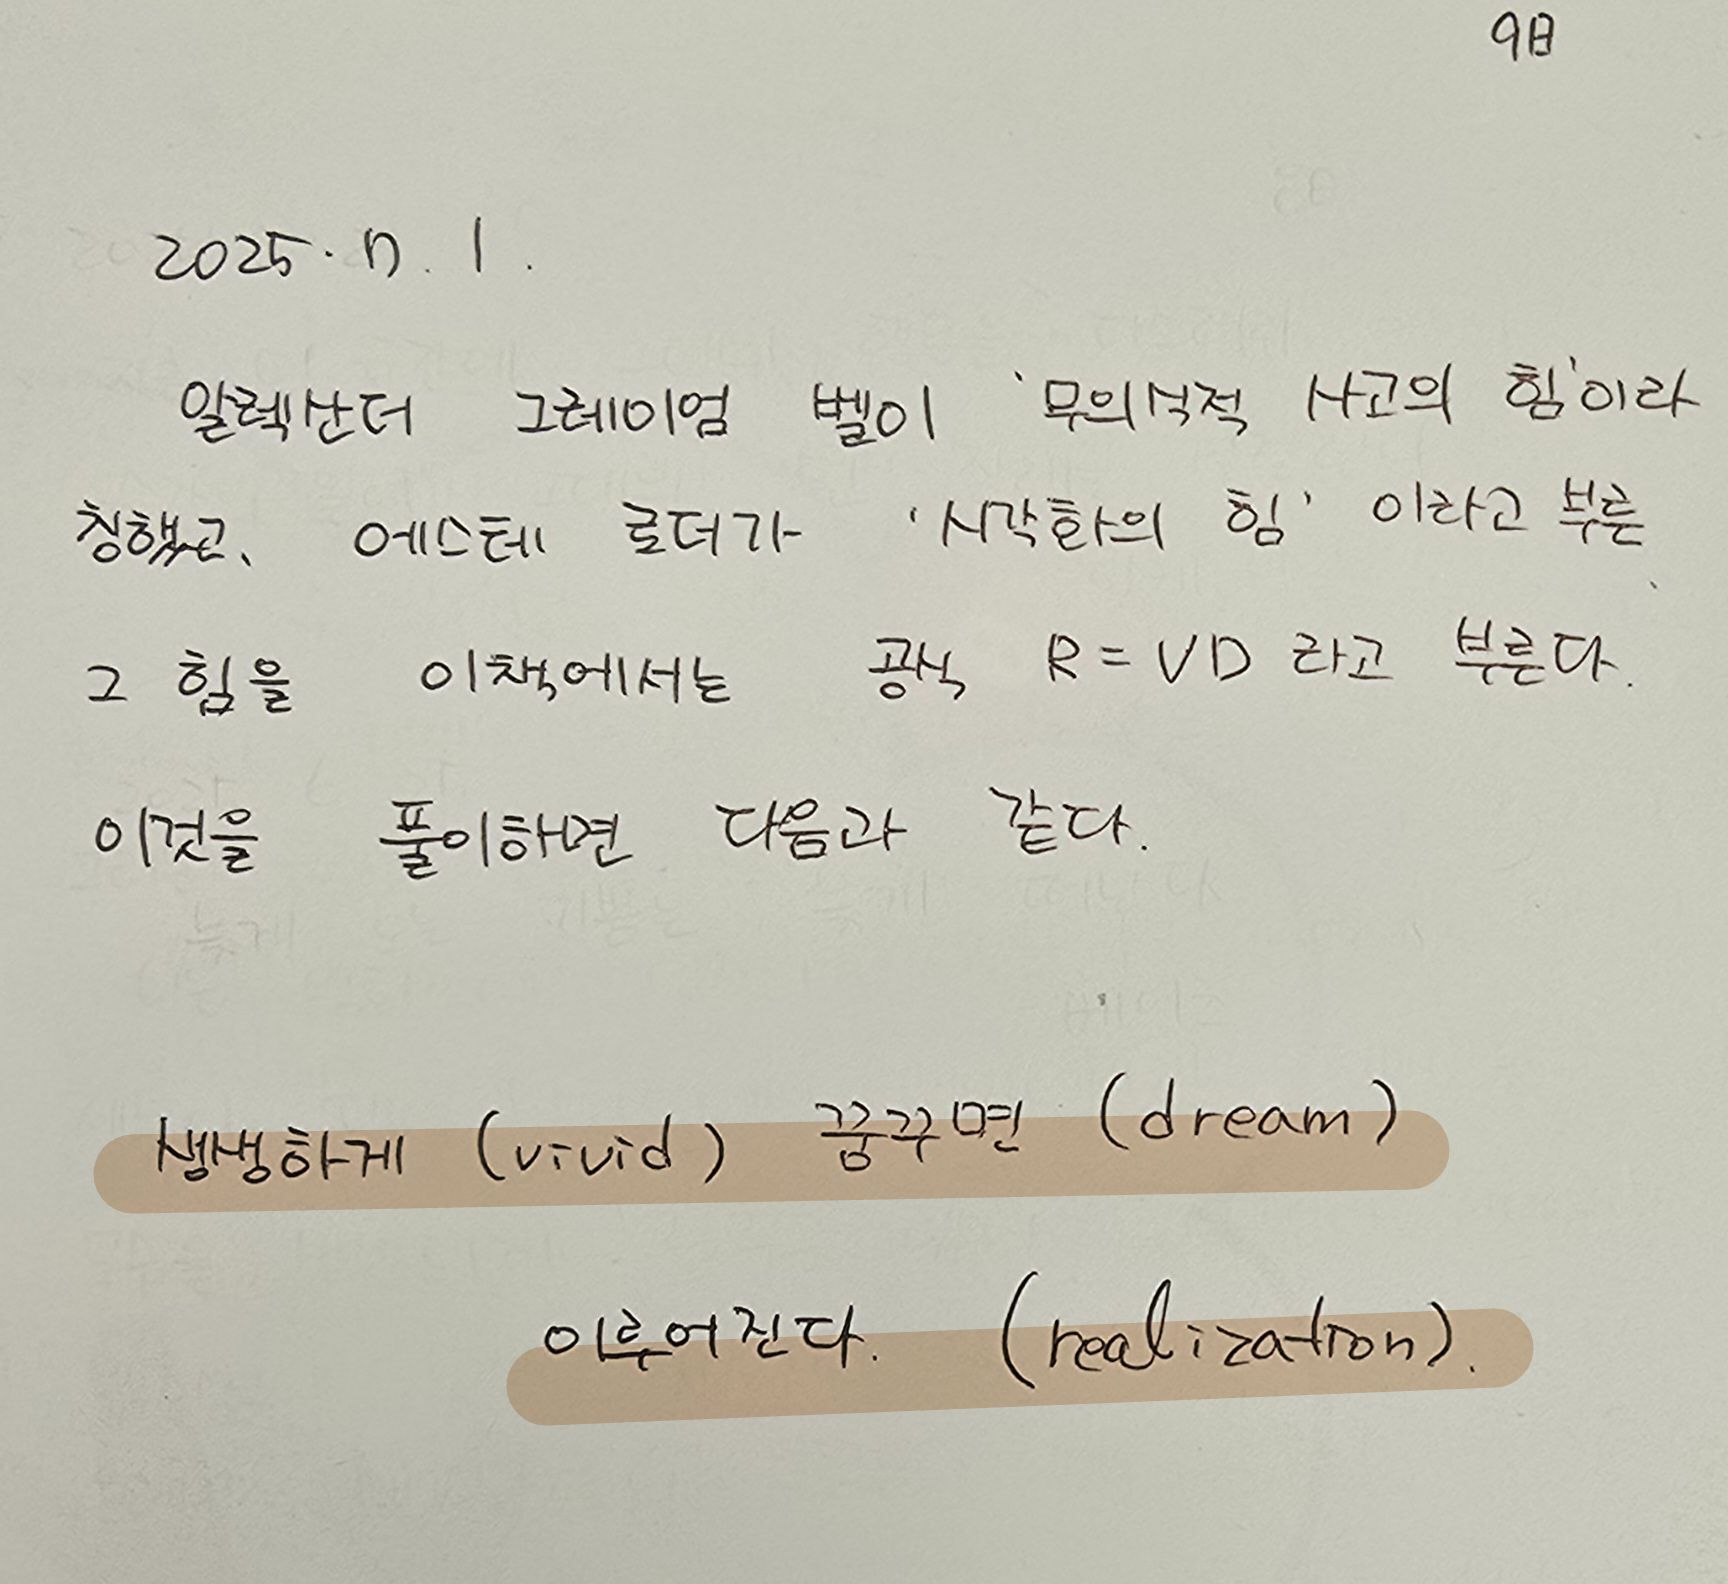 98
2025. 7. 1.
알렉산더 그레이엄 벨이 '무의식적 사고의 힘'이라
칭했고, 에스테 로더가 '시각화의 힘' 이라고 부른
그 힘을 이책에서는 공식 R = VD 라고 부른다.
이것을 풀이하면 다음과 같다.
생생하게 (vivid) 꿈꾸면 (dream)
이루어진다. (realization).